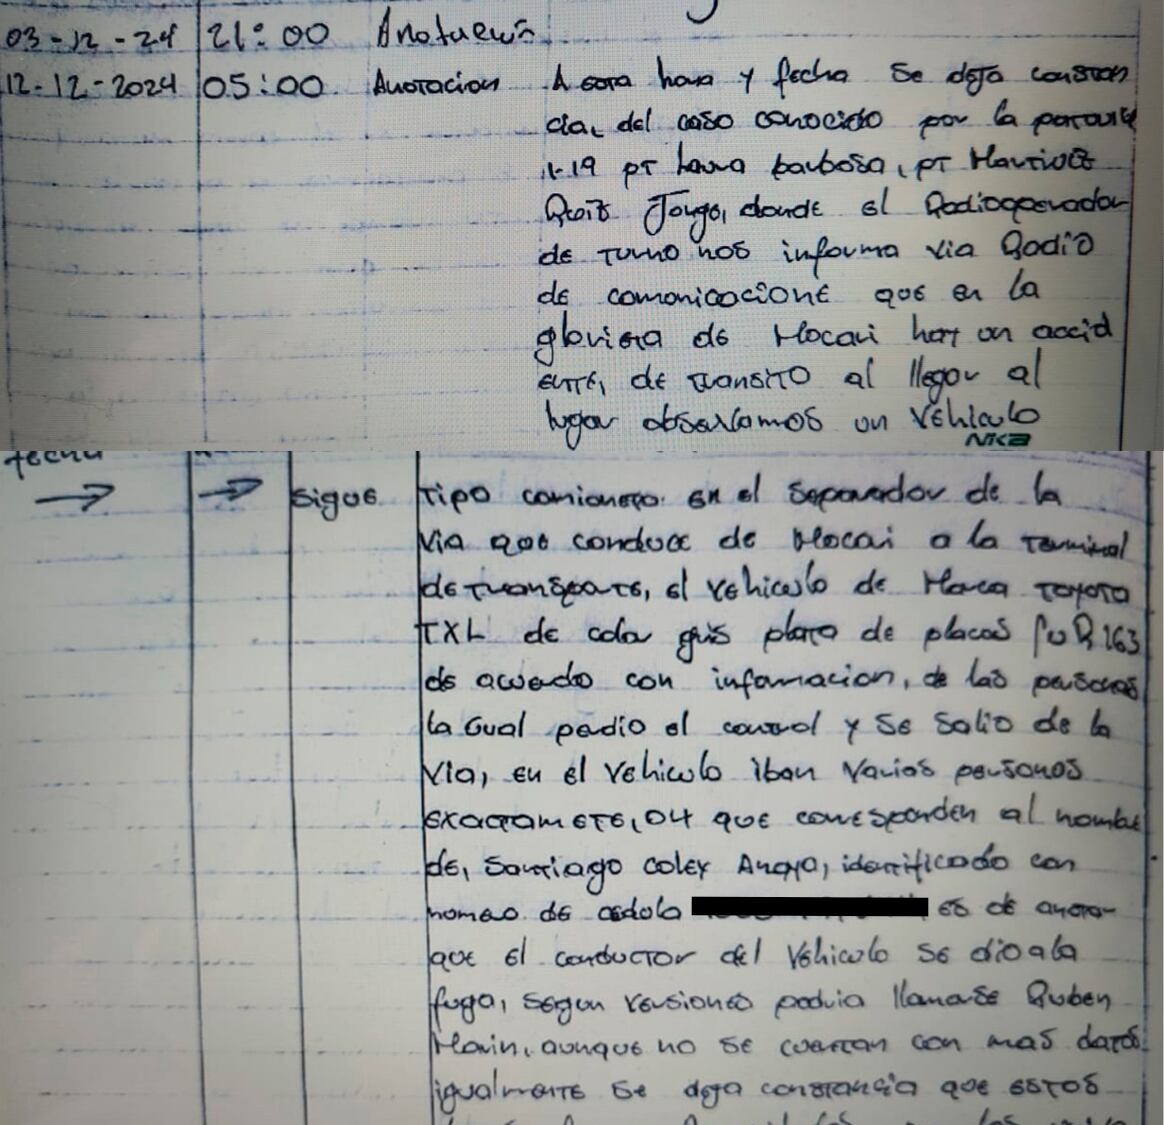 03-12-24 21:00 Anotación
12-12-2024 05:00 Anotacion A esta hora y fecha se deja constan
cia, del caso conocido por la patrulla
1-19 PT laura barbosa, PT Martinez
Jorge, donde el Radioperador
de turno nos informa via Radio
de comonicacione que en la
glorieta de Mocari hay un accid
ente, de transito al llegar al
lugar observamos un Vehiculo
fecha
sigue tipo camioneta en el separador de la
via que conduce de Mocari a la Terminal
de transporte, el vehiculo de Marca TOYOTA
TXL de color gris plata de placas 163
de acuerdo con informacion, de las personas
la cual perdio el control y se salio de la
via, en el vehiculo iban varias personas
exactamete, 04 que corresponden al nombre
de, Santiago Coley Anaya, identificado con
nomero de cedula es de anotar
que el conductor del Vehiculo se dio a la
fuga, segun versiones podria llamarse Ruben
Marin, aunque no se cuentan con mas datos
igualmente se deja constancia que estos